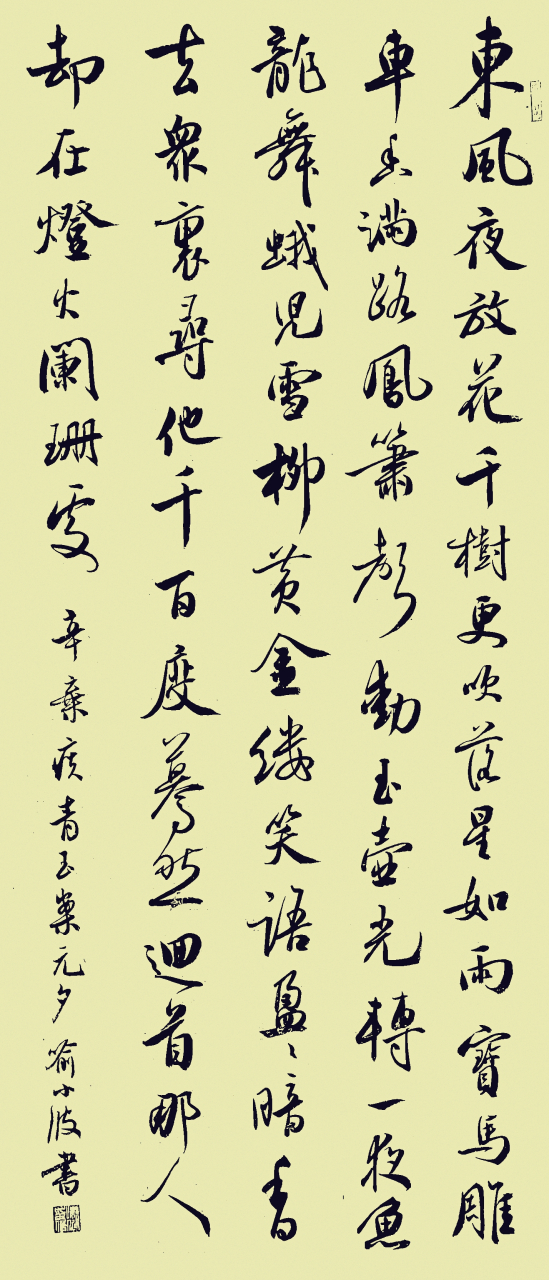 東風夜放花千樹更吹落星如雨寶馬雕
車香滿路鳳簫聲動玉壺光轉一夜魚
龍舞蛾兒雪柳黃金縷笑語盈〻暗香
去衆裏尋他千百度驀然迴首那人
却在燈火闌珊處
辛棄疾青玉案元夕 喻小波書